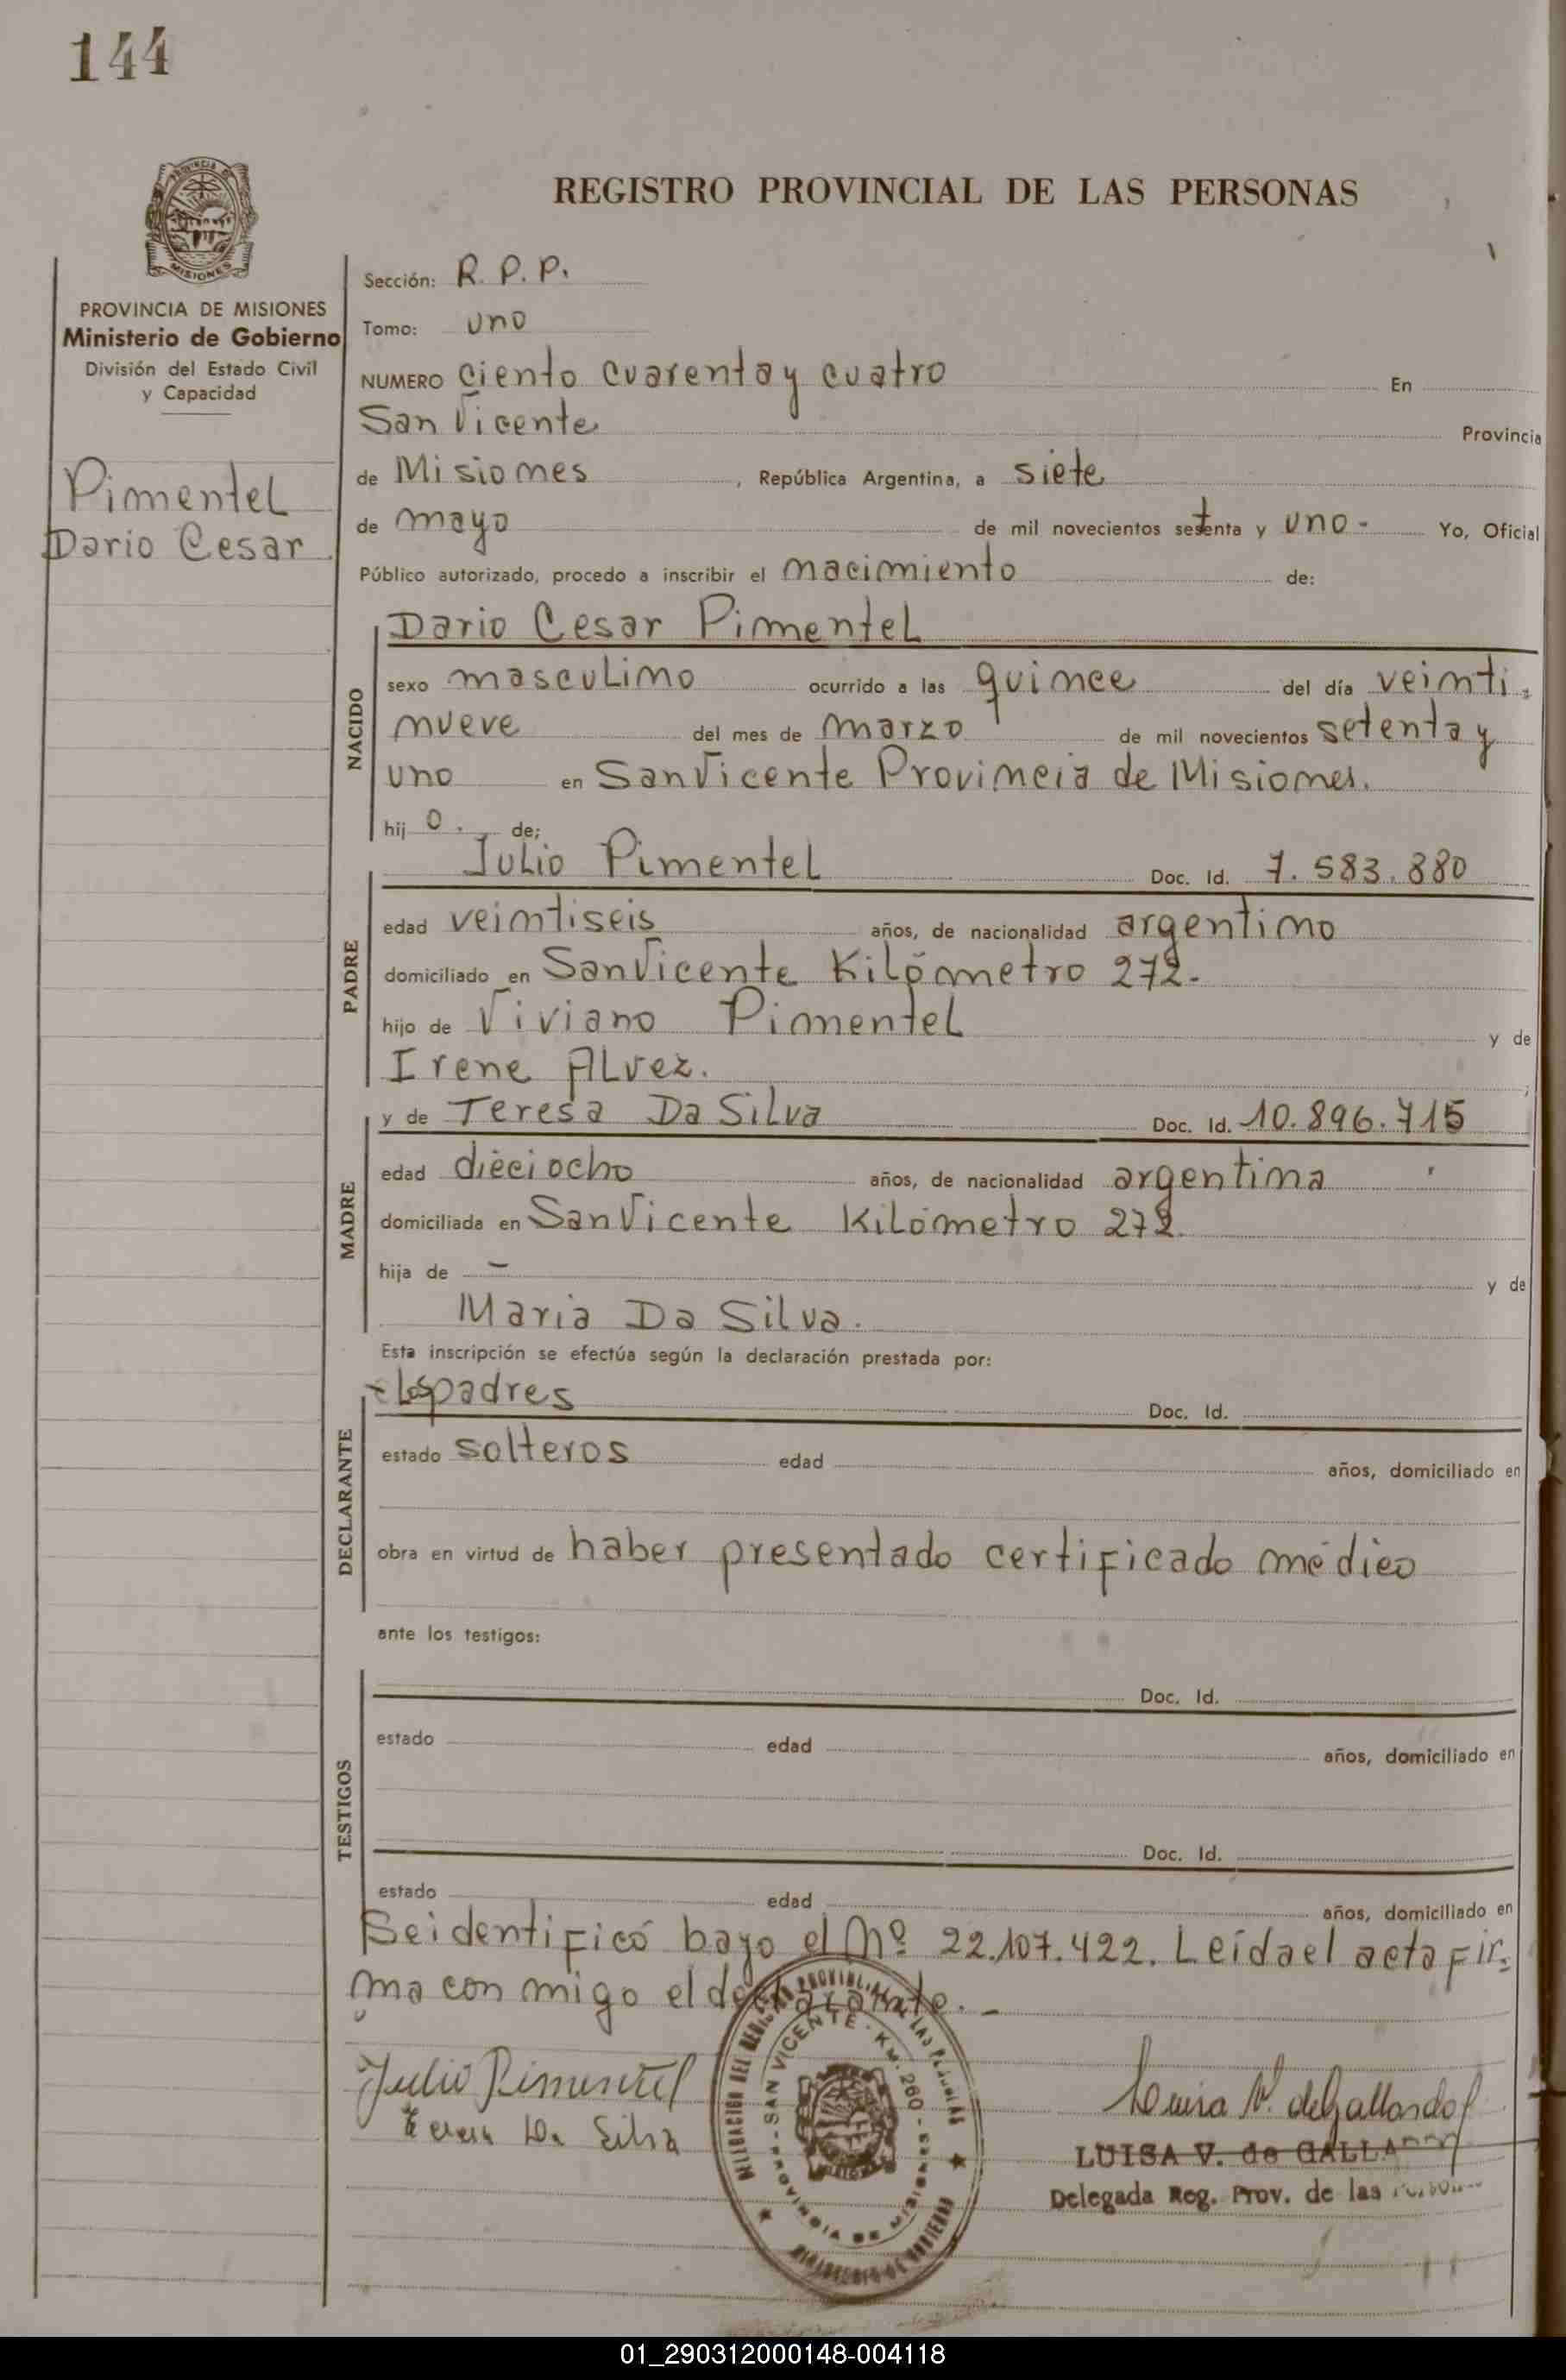 144
PROVINCIA DE
MISIONES
REGISTRO PROVINCIAL DE LAS PERSONAS
PROVINCIA DE MISIONES
Ministerio de Gobierno
División del Estado Civil
y Capacidad
Pimentel
Dario Cesar
Sección: R. P. P.
Tomo: uno
NUMERO ciento cuarenta y cuatro En
San Vicente Provincia
de Misiones, República Argentina, a siete
de mayo de mil novecientos setenta y uno- Yo, Oficial
Público autorizado, procedo a inscribir el nacimiento de:
NACIDO
Dario Cesar Pimentel
sexo masculino ocurrido a las quince del día veinti-
nueve del mes de marzo de mil novecientos setenta y
uno en San Vicente Provincia de Misiones.
hij o. de;
PADRE
Julio Pimentel Doc. Id. 7.583.880
edad veintiseis años, de nacionalidad argentino
domiciliado en San Vicente Kilómetro 272-
hijo de Viviano Pimentel y de
Irene Alvez. ;
MADRE
y de Teresa Da Silva Doc. Id. 10.896.715
edad dieciocho años, de nacionalidad argentina
domiciliada en San Vicente Kilómetro 272.
hija de - y de
Maria Da Silva.
Esta inscripción se efectúa según la declaración prestada por:
DECLARANTE
- los padres Doc. Id.
estado solteros edad años, domiciliado en
obra en virtud de haber presentado certificado médico
ante los testigos:
TESTIGOS
Doc. Id.
estado edad años, domiciliado en
Doc. Id.
estado edad años, domiciliado en
Se identificó bajo el Nº 22.107.422. Leída el acta fir-
ma con migo el declarante.-
DELEGACION DEL REGISTRO PROVINCIAL DE LAS PERSONAS
SAN VICENTE - KM. 260 - PROVINCIA DE MISIONES
MINISTERIO DE GOBIERNO
Julio Pimentel
Teresa Da Silva
Luisa V. de Gallardo
LUISA V. de GALLARDO
Delegada Reg. Prov. de las Personas
01_290312000148-004118